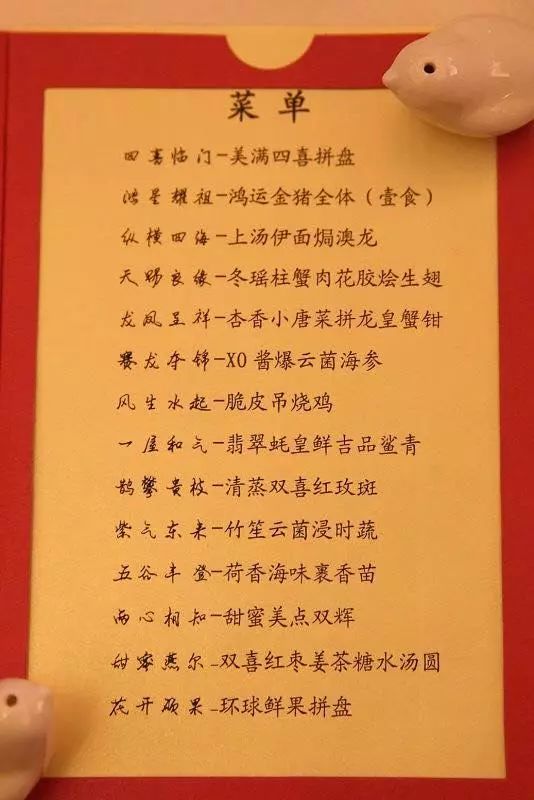 菜单
四喜临门-美满四喜拼盘
鸿星耀祖-鸿运金猪全体（壹食）
纵横四海-上汤伊面焗澳龙
天赐良缘-冬瑶柱蟹肉花胶烩生翅
龙凤呈祥-杏香小唐菜拼龙皇蟹钳
赛龙夺锦-XO酱爆云菌海参
风生水起-脆皮吊烧鸡
一屋和气-翡翠蚝皇鲜吉品鲨青
鹊攀贵枝-清蒸双喜红玫斑
紫气东来-竹笙云菌浸时蔬
五谷丰登-荷香海味裹香苗
两心相知-甜蜜美点双辉
甜蜜燕尔-双喜红枣姜茶糖水汤圆
花开硕果-环球鲜果拼盘